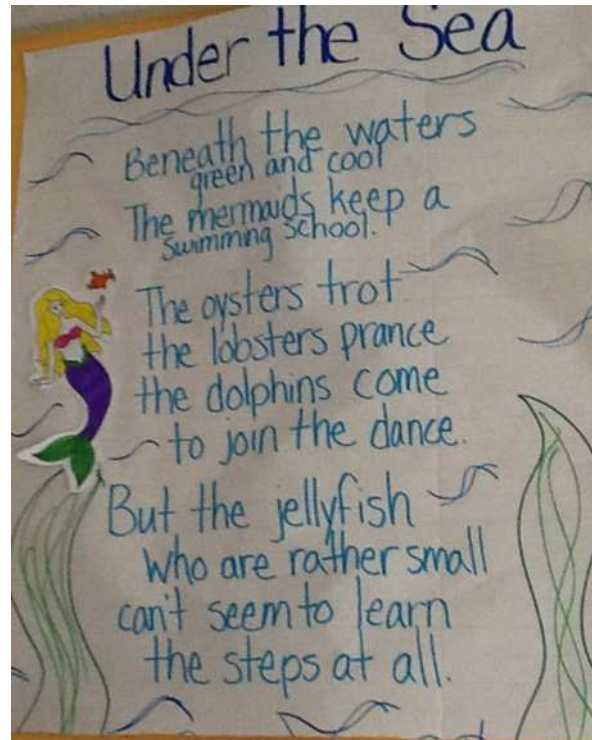 Under the Sea
Beneath the waters
green and cool
The mermaids keep a
swimming school.
The oysters trot
the lobsters prance
the dolphins come
to join the dance.
But the jellyfish
who are rather small
can't seem to learn
the steps at all.